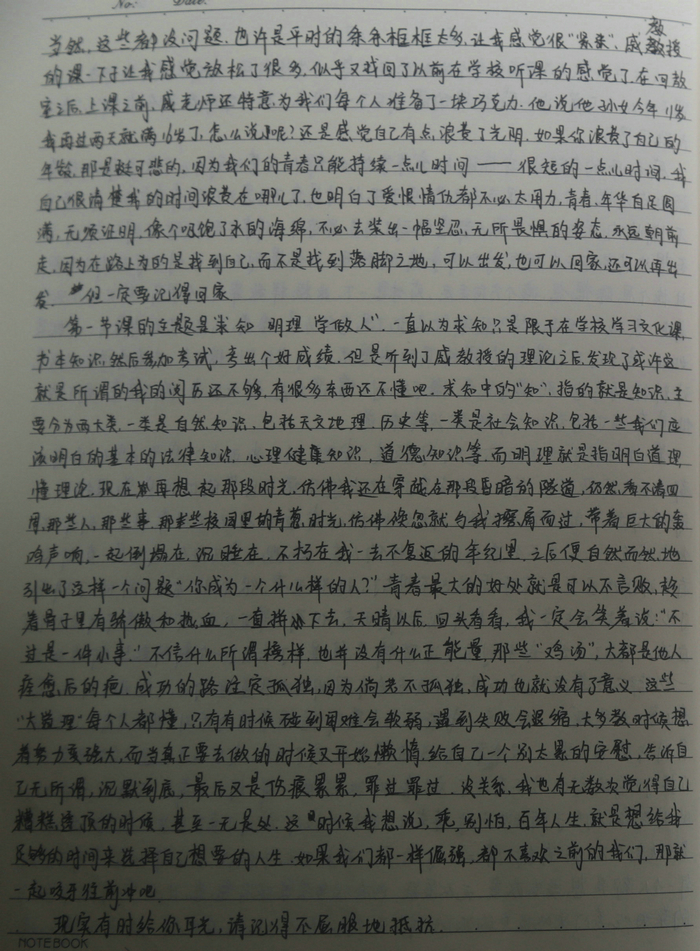 No. Date.
教
当然，这些都没问题，也许是平时的条条框框太多，让我感觉很"紧张"，戚教授
的课一下子让我感觉放松了很多，似乎又找回了以前在学校听课的感觉了，在回教
室之后，上课之前，戚老师还特意为我们每个人准备了一块巧克力，他说他孙女今年
我再过两天就满岁了，怎么说呢？还是感觉自己有点浪费了光阴，如果你浪费了自己的
年龄，那是挺可悲的，因为我们的青春只能持续一点儿时间——很短的一点儿时间，我
自己很清楚我的时间浪费在哪儿了，也明白了爱恨情仇都不必太用力，青春年华自足圆
满，无须证明，像个吸饱了水的海绵，不必去装出一幅坚忍，无所畏惧的姿态，永远朝前
走，因为在路上为的是找到自己，而不是找到落脚之地，可以出发，也可以回家，还可以再出
发，但一定要记得回家
第一节课的主题是"求知 明理 学做人"，一直以为求知只是限于在学校学习文化课，
书本知识，然后参加考试，考出个好成绩，但是听到了戚教授的理论之后，发现了或许这
就是所谓的我的阅历还不够，有很多东西还不懂吧，求知中的"知"，指的就是知识，主
要分为两大类，一类是自然知识，包括天文地理，历史等，一类是社会知识，包括一些我们应
该明白的基本的法律知识，心理健康知识，道德知识等，而明理就是指明白道理
懂理论，现在再想起那段时光，仿佛我还在穿越在那段昏暗的隧道，仍然看不清四
周，那些人，那些事，那些校园里的青葱时光，仿佛倏忽就与我擦肩而过，带着巨大的轰
鸣声响，一起倒塌在，沉睡在，不朽在我一去不复返的年纪里，之后便自然而然地
引出了这样一个问题"你成为一个什么样的人？"青春最大的好处就是可以不言败，趁
着骨子里有骄傲和热血，一直拼下去，天晴以后，回头看看，我一定会笑着说："不
过是一件小事。"不信什么所谓榜样，也并没有什么正能量，那些"鸡汤"，大都是他人
痊愈后的疤，成功的路注定孤独，因为倘若不孤独，成功也就没有了意义，这些
"大道理"每个人都懂，只有有时候碰到困难会软弱，遇到失败会退缩，大多数时候想
着努力变强大，而当真正要去做的时候又开始懒惰，给自己一个别太累的安慰，告诉自
己无所谓，沉默到底，最后又是伤痕累累，罪过罪过，没关系，我也有无数次觉得自己
糟糕透顶的时候，甚至一无是处，这时候我想说，乖，别怕，百年人生，就是想给我
足够的时间来选择自己想要的人生，如果我们都一样倔强，都不喜欢之前的我们，那就
一起咬牙往前冲吧
现实有时给你耳光，请记得不屈服地抵抗．
NOTEBOOK